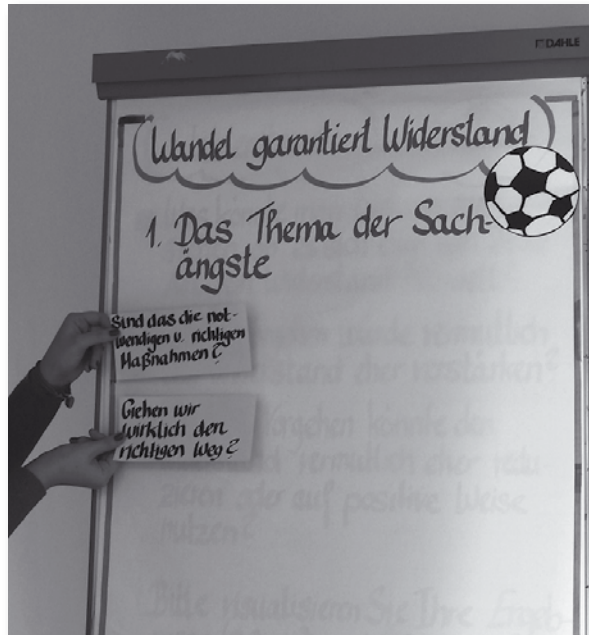 DAHLE
Wandel garantiert Widerstand
1. Das Thema der Sach-
ängste
Sind das die not-
wendigen u. richtigen
Maßnahmen?
Gehen wir
wirklich den
richtigen Weg?
vermutlich
verstärken?
könnte den
vermutlich eher redu-
zieren oder auf positive Weise
nutzen?
Bitte visualisieren Sie Ihre Ergeb-